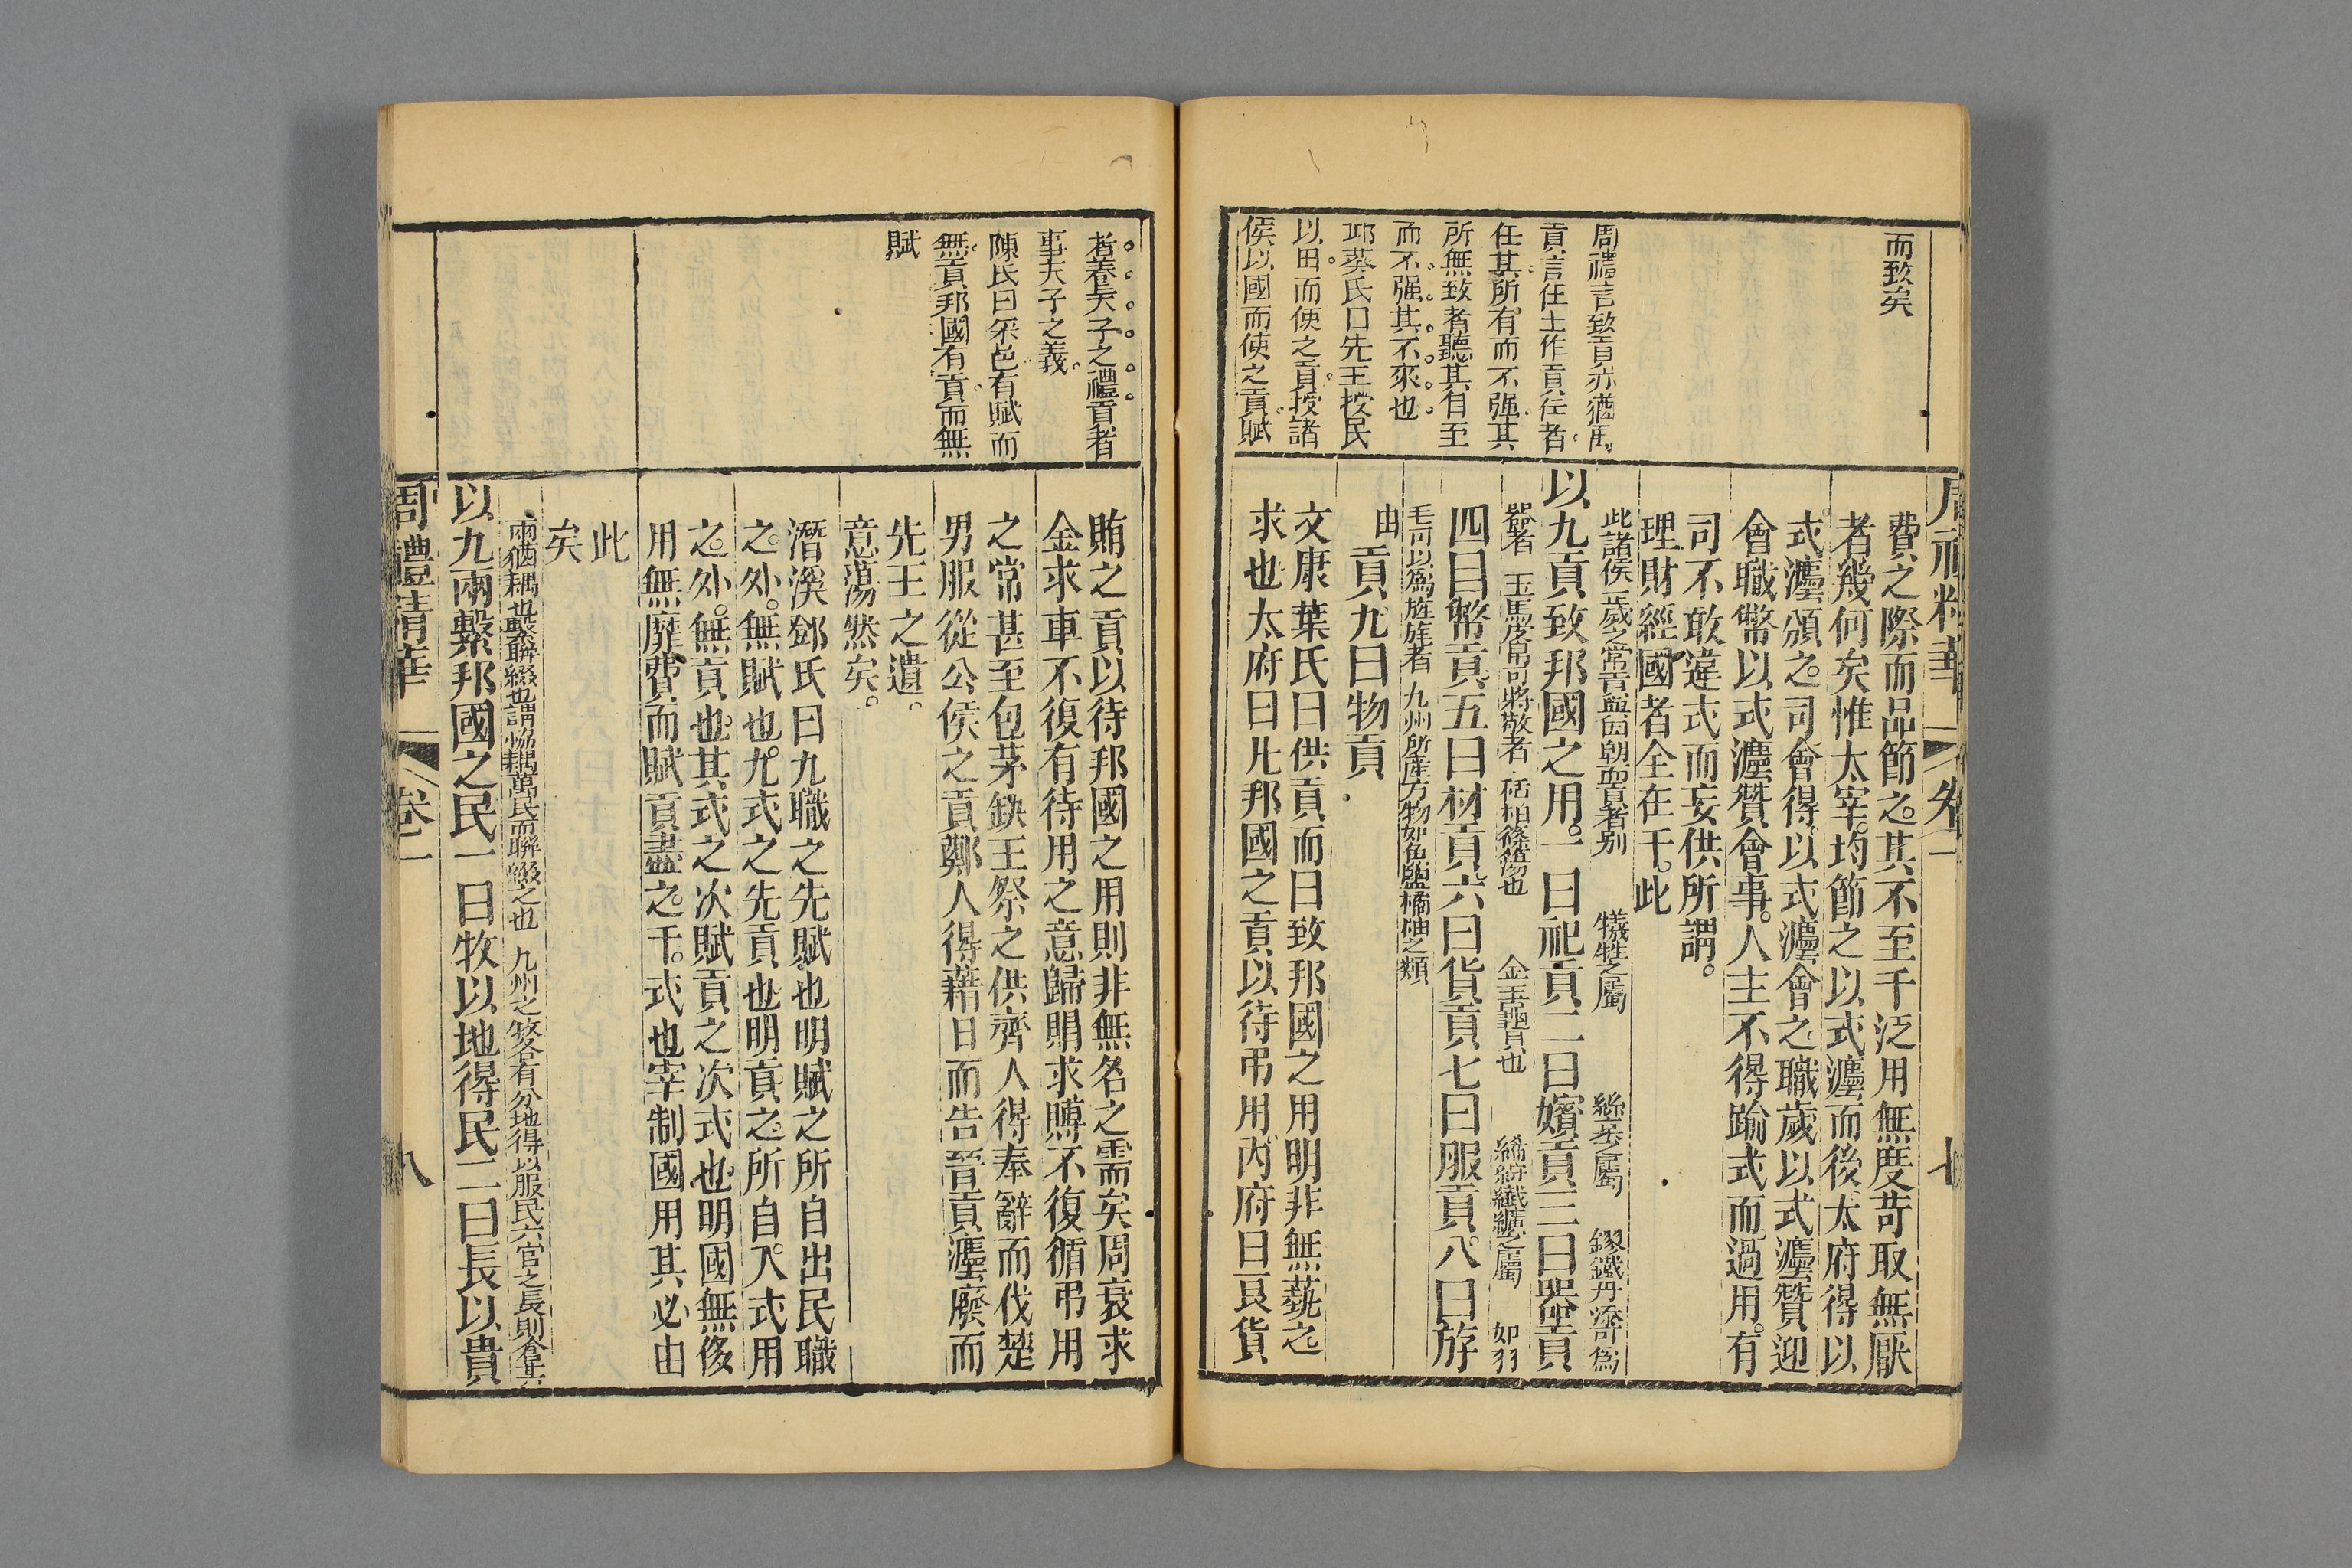 而致矣
周禮言致貢亦猶禹
貢言任土作貢任者
任其所有而不强其
所無致者聽其自至
而不强其不來也
邱葵氏曰先王授民
以田而使之貢授諸
侯以國而使之貢賦
周禮精華 卷一 七
費之際而品節之其不至千泛用無度苛取無厭
者幾何矣惟太宰均節之以式灋而後太府得以
式灋頒之司會得以式灋會之職歲以式灋贊迎
會職幣以式灋贊會事人主不得踰式而過用有
司不敢違式而妄供所謂
理財經國者全在千此
此諸侯正歲之常貢與因朝而貢者别 犧牲之屬 絲枲之屬 鏐鐵丹漆可爲
以九貢致邦國之用一曰祀貢二曰嬪貢三曰器貢
器者 玉馬皮帛可將敬者 栝柏篠簜也 金玉龜貝也 絺紵纖纊之屬 如羽
四曰幣貢五曰材貢六曰貨貢七曰服貢八曰斿
毛可以爲旌旄者 九州所產方物如魚鹽橘柚之類
貢九曰物貢
文康葉氏曰供貢而曰致邦國之用明非無蓺之
求也太府曰凡邦國之貢以待弔用內府曰良貨
者養天子之禮貢者
事天子之義
陳氏曰采邑有賦而
無貢邦國有貢而無
賦
賄之貢以待邦國之用則非無名之需矣周衰求
金求車不復有待用之意歸賵求賻不復循弔用
之常甚至包茅缺王祭之供齊人得奉辭而伐楚
男服從公侯之貢鄭人得藉日而告晉貢灋廢而
先王之遺
意蕩然矣
潛溪鄧氏曰九職之先賦也明賦之所自出民職
之外無賦也九式之先貢也明貢之所自入式用
之外無貢也其式之次賦貢之次式也明國無侈
用無靡費而賦貢盡之千式也宰制國用其必由
此
矣
兩猶耦也繫聯綴也謂恊耦萬民而聯綴之也 九州之牧各有分地得以服民六官之長則食其
以九兩繫邦國之民一曰牧以地得民二曰長以貴
周禮精華 卷一 八